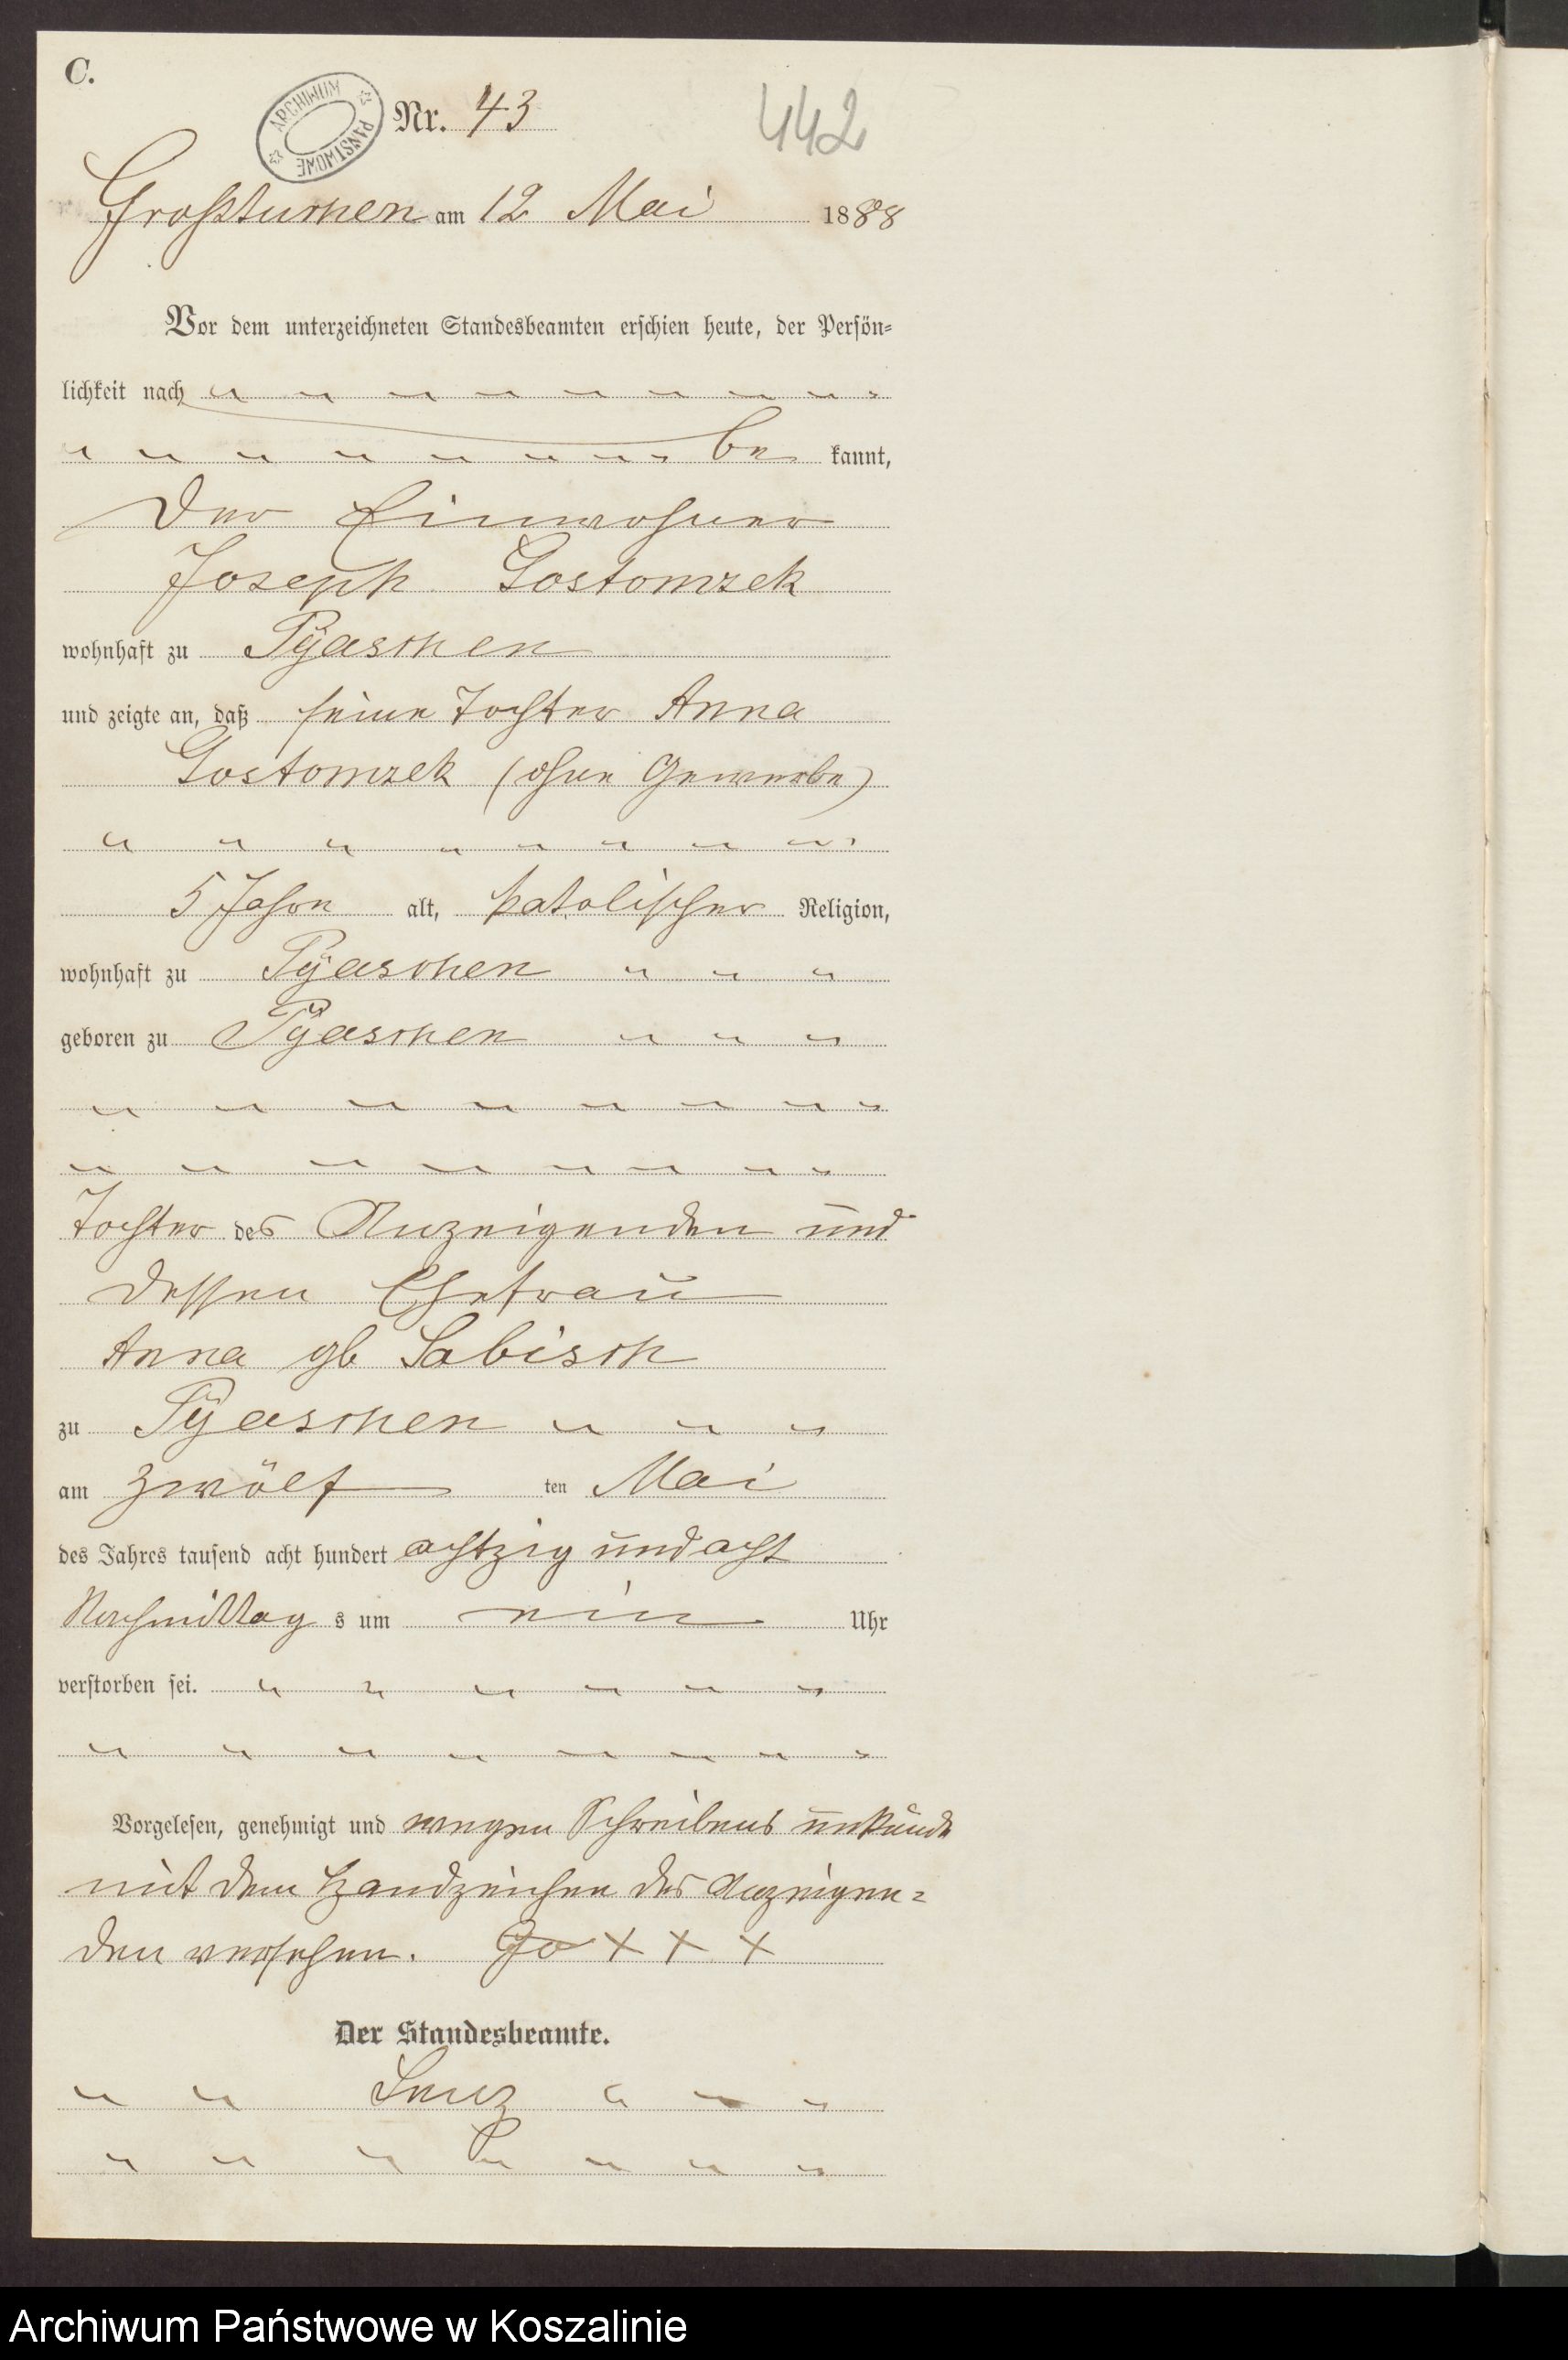 C.
ARCHIWUM PAŃSTWOWE
Nr. 43
442
Großtuchen am 12 Mai 1888
Vor dem unterzeichneten Standesbeamten erschien heute, der Persön-
lichkeit nach
be kannt,
der Einwohner
Joseph Gostomzek
wohnhaft zu Pyaschen
und zeigte an, daß seine Tochter Anna
Gostomzek (ohne Gewerbe)
5 Jahre alt, katolischer Religion,
wohnhaft zu Pyaschen
geboren zu Pyaschen
Tochter des Anzeigenden und
dessen Ehefrau
Anna gb Sabisch
zu Pyaschen
am zwölf ten Mai
des Jahres tausend acht hundert achtzig und acht
Nachmittag s um ein Uhr
verstorben sei.
Vorgelesen, genehmigt und wegen Schreibens unkunde
mit dem Handzeichen des Anzeigen-
den versehen. + + +
Der Standesbeamte.
Archiwum Państwowe w Koszalinie